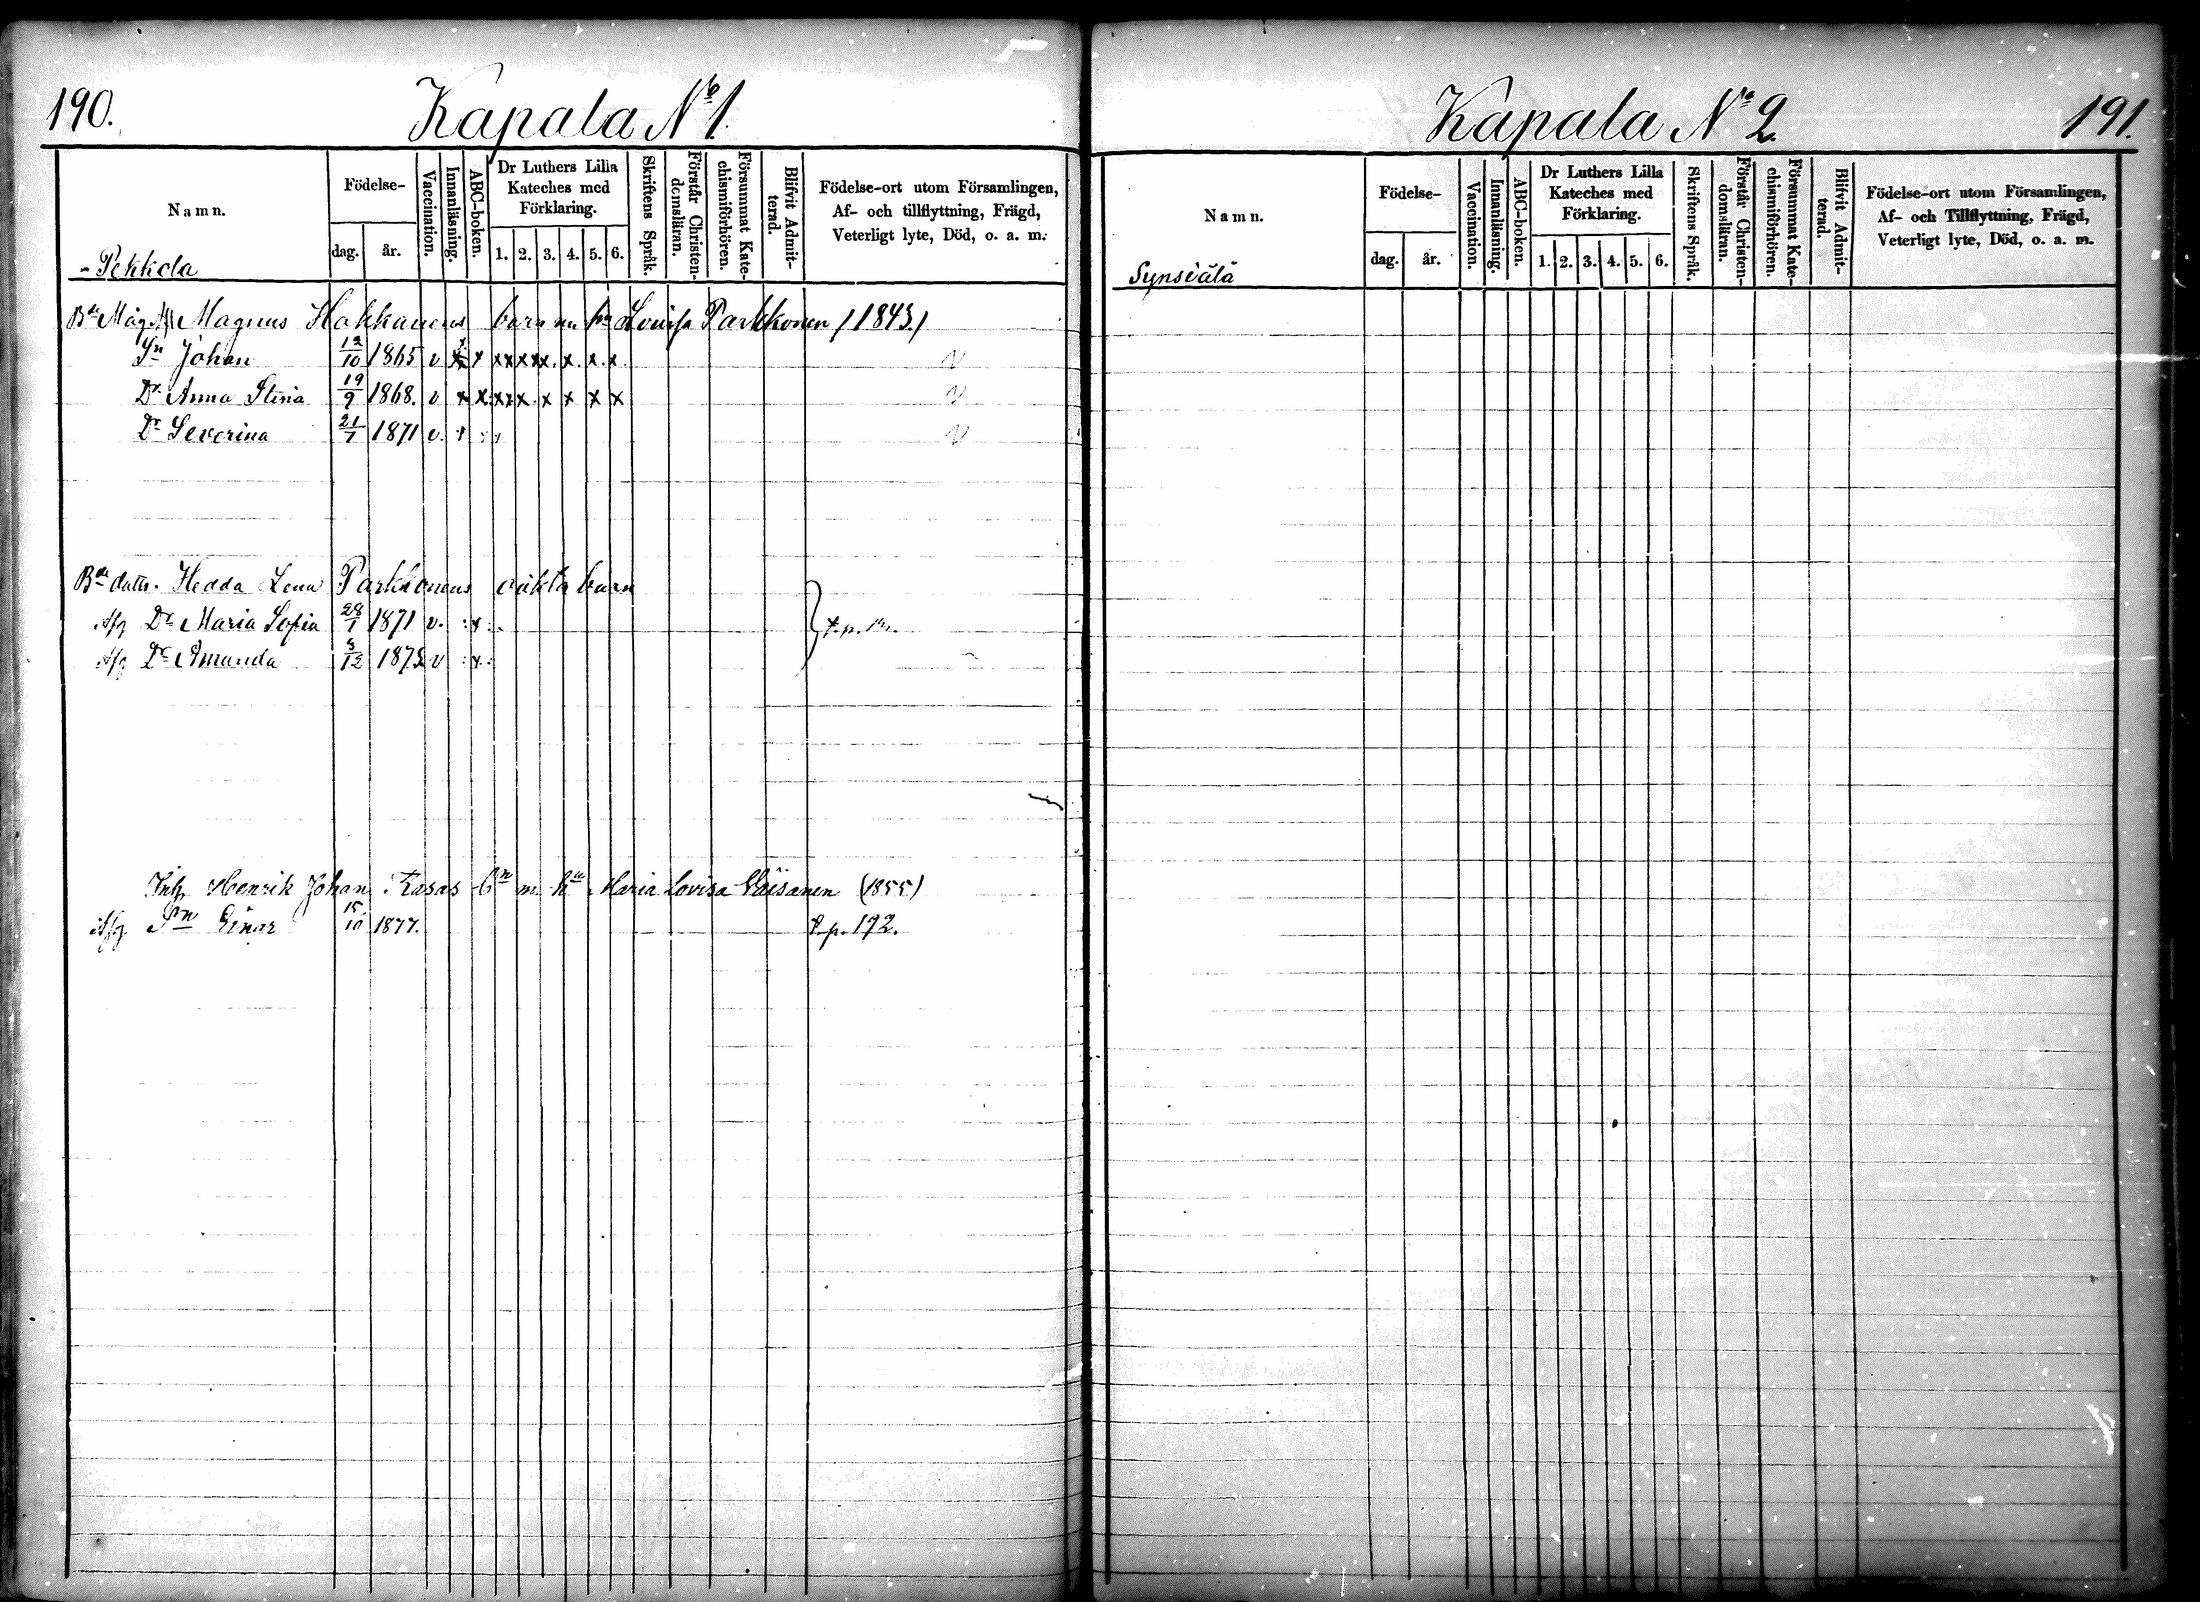 190.
Kapala No 1.
Namn.
Födelse-
dag.
år.
Vaccination.
Innanläsning.
ABC-boken.
Dr Luthers Lilla
Kateches med
Förklaring.
1. 2. 3. 4. 5. 6.
Skriftens Språk.
Förstår Christen-
domsläran.
Försummat Kate-
chismiförhören.
Blifvit Admit-
terad.
Födelse-ort utom Församlingen,
Af- och tillflyttning, Frägd,
Veterligt lyte, Död, o. a. m.
Pekkola
Bde Måg Magnus Hakkanens barn m hu Lovisa Parkkonen /1843/
Sn Johan 12/10 1865 v x x x x x x x. x. x. x.
Dr Anna Stina 19/9 1868. v x x x x x x x x x
Dr Severina 21/7 1871 v.
Bde dattr. Hedda Lena Parkkonens oäkta barn
Afg Dr Maria Sofia 28/1 1871 v. :x:
Afg Dr Amanda 1875 v :x:
Inh Henrik Johan Kasas bn m hu Maria Lovisa Väisänen (1855)
Afg Sn Einar 15/10 1877. t.p. 192.
Kapala No 2
191.
Namn.
Födelse-
dag.
år.
Vaccination.
Innanläsning.
ABC-boken.
Dr Luthers Lilla
Kateches med
Förklaring.
1. 2. 3. 4. 5. 6.
Skriftens Språk.
Förstår Christen-
domsläran.
Försummat Kate-
chismiförhören.
Blifvit Admit-
terad.
Födelse-ort utom Församlingen,
Af- och Tillflyttning, Frägd,
Veterligt lyte, Död, o. a. m.
Synsiälä